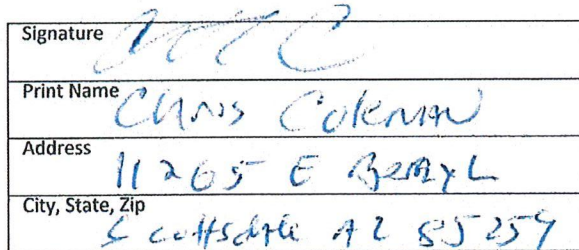 Signature
Print Name
Chris Coleman
Address
11265 E Beryl
City, State, Zip
Scottsdale AZ 85259